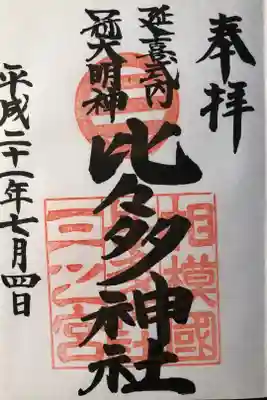 奉拝
延喜式内
冠大明神
比々多神社
平成二十一年七月四日
相模國
三之宮